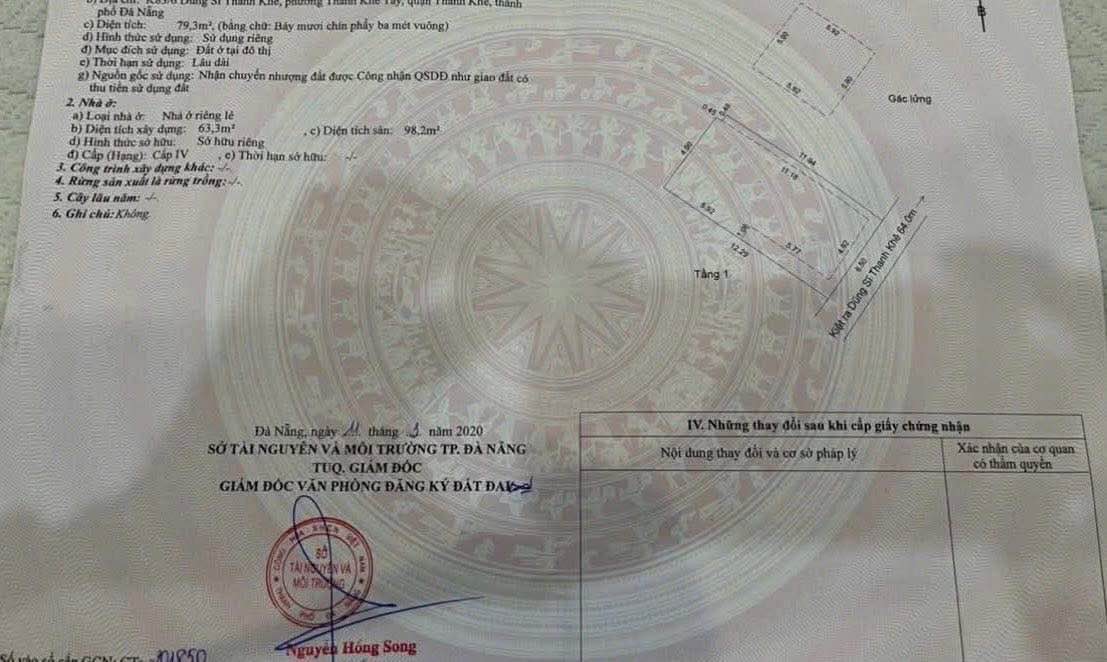 b) Địa chỉ: K83/6 Dũng Sĩ Thanh Khê, phường Thanh Khê Tây, quận Thanh Khê, thành
phố Đà Nẵng
c) Diện tích: 79,3m², (bằng chữ: Bảy mươi chín phẩy ba mét vuông)
d) Hình thức sử dụng: Sử dụng riêng
đ) Mục đích sử dụng: Đất ở tại đô thị
e) Thời hạn sử dụng: Lâu dài
g) Nguồn gốc sử dụng: Nhận chuyển nhượng đất được Công nhận QSDĐ như giao đất có
thu tiền sử dụng đất
2. Nhà ở:
a) Loại nhà ở: Nhà ở riêng lẻ
b) Diện tích xây dựng: 63,3m² , c) Diện tích sàn: 98,2m²
d) Hình thức sở hữu: Sở hữu riêng
đ) Cấp (Hạng): Cấp IV , e) Thời hạn sở hữu: -/-
3. Công trình xây dựng khác: -/-
4. Rừng sản xuất là rừng trồng: -/-.
5. Cây lâu năm: -/-.
6. Ghi chú: Không.
B
5.92
5.00
5.92
5.00
Gác lửng
0.45
4.90
11.94
11.18
5.92
5.77
12.29
4.92
6.50
Tầng 1
Kiệt ra Dũng Sĩ Thanh Khê 64.0m
Đà Nẵng, ngày 11 tháng 3 năm 2020
SỞ TÀI NGUYÊN VÀ MÔI TRƯỜNG TP. ĐÀ NẴNG
TUQ. GIÁM ĐỐC
GIÁM ĐỐC VĂN PHÒNG ĐĂNG KÝ ĐẤT ĐAI
SỞ
TÀI NGUYÊN VÀ
MÔI TRƯỜNG
Nguyễn Hồng Song
IV. Những thay đổi sau khi cấp giấy chứng nhận
Nội dung thay đổi và cơ sở pháp lý
Xác nhận của cơ quan
có thẩm quyền
Số vào sổ cấp GCN: CT